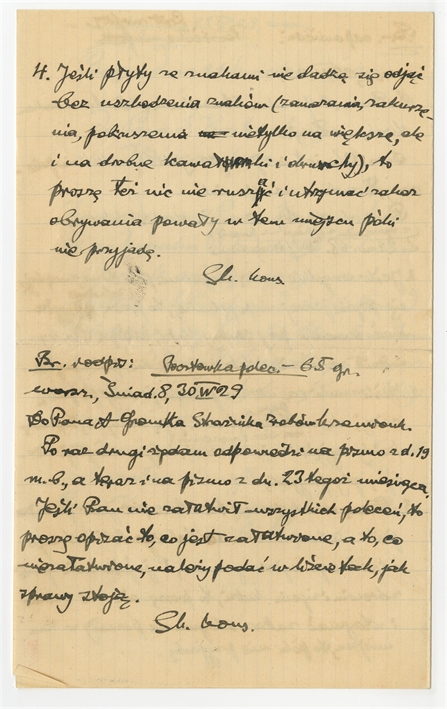 4. Jeśli płyty ze znakami nie dadzą się odjąć
bez uszkodzenia znaków (zamazania, zakurze-
nia, pokruszenia nietylko na większe, ale
i na drobne kawałki i druchy), to
proszę też nic nie ruszać i utrzymać zakaz
obrywania powały w tem miejscu póki
nie przyjadę.
St. kons.
Br. rodpis: Pocztówka polec. – 65 gr.
warsz., Śniad. 8, 30 IV 29
Do Pana A Gromka Strażnika zabów krzemionk.
Po raz drugi żądam odpowiedzi na pismo z d. 19
m. b., a teraz i na pismo z dn. 23 tegoż miesiąca.
Jeśli Pan nie załatwił wszystkich poleceń, to
proszę opisać to, co jest załatwione, a to, co
niezałatwione, należy podać w liście tak, jak
sprawy stoją.
St. kons.